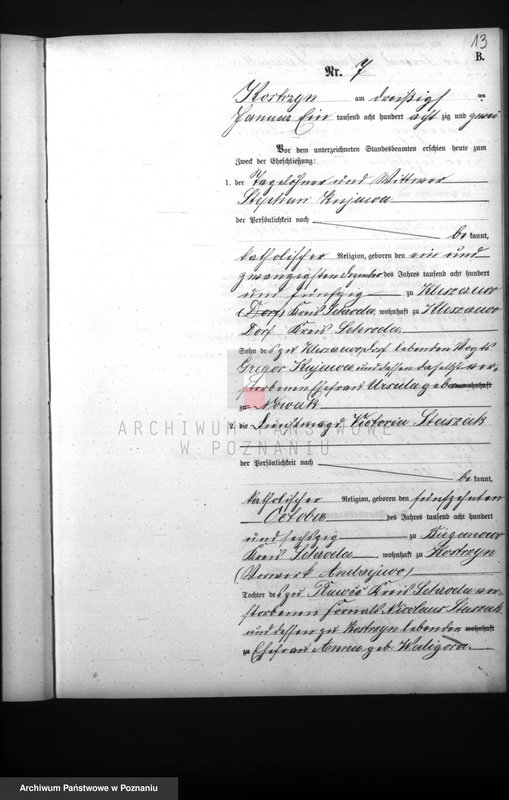 13
B.
Nr. 7
Kostrzyn am dreißigs ten
Januar Ein tausend acht hundert acht zig und zwei
Vor dem unterzeichneten Standesbeamten erschien heute zum
Zweck der Eheschließung:
1. der Tagelöhner und Wittwer
Stephan Kujawa
der Persönlichkeit nach
be kannt,
katholischer Religion, geboren den ein und
zwanzigsten Dezember des Jahres tausend acht hundert
und fünfzig zu Kleszewo
(Dorf) Kreis Schroda, wohnhaft zu Kleszewo
Dorf Kreis Schroda
Sohn des zu Kleszewo, Dorf lebenden Vogts
Gregor Kujawa und dessen daselbst ver-
storbenen Ehefrau Ursula geb. wohnhaft
zu Nowak
2. die Dienstmagd Victoria Stasiak
ARCHIWUM PAŃSTWOWE
W POZNANIU
der Persönlichkeit nach
be kannt,
katholischer Religion, geboren den fünfzehnten
October des Jahres tausend acht hundert
und sechszig zu
Kreis Schroda, wohnhaft zu Kostrzyn
(Vorwerk Andrzejewo)
Tochter des zu Kreis Schroda ver-
storbenen Fornals Nicolaus Stasiak
und dessen zu Kostrzyn lebenden wohnhaft
zu Ehefrau Anna geb. Waligora
Archiwum Państwowe w Poznaniu